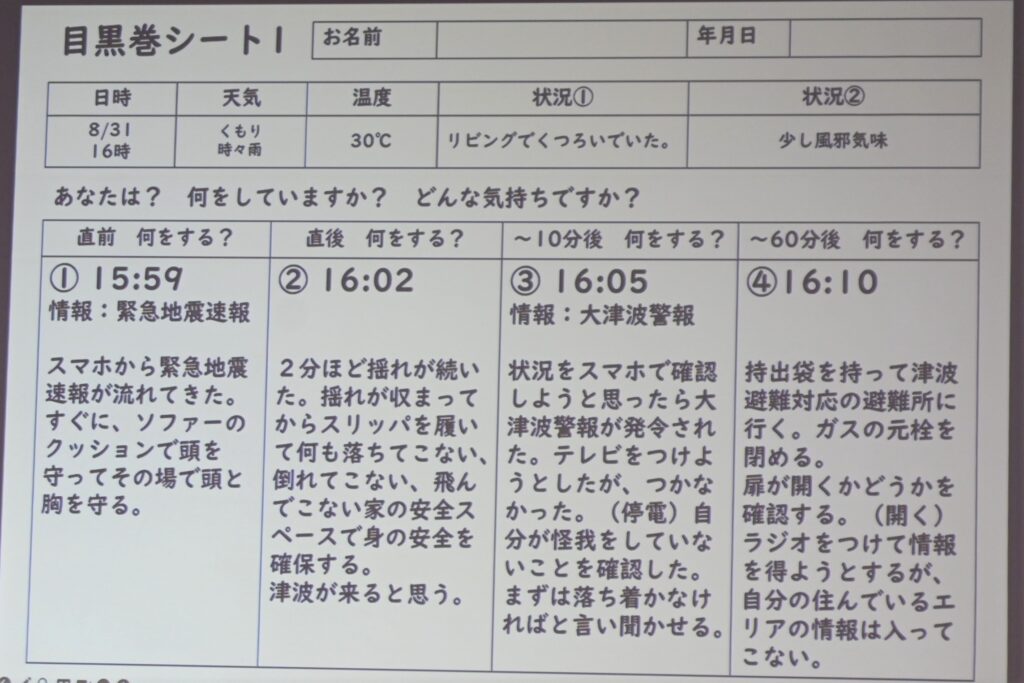 目黒巻シート1
お名前
年月日
日時
天気
温度
状況①
状況②
8/31
16時
くもり
時々雨
30℃
リビングでくつろいでいた。
少し風邪気味
あなたは? 何をしていますか? どんな気持ちですか?
直前 何をする?
直後 何をする?
~10分後 何をする?
~60分後 何をする?
① 15:59
情報:緊急地震速報
スマホから緊急地震
速報が流れてきた。
すぐに、ソファーの
クッションで頭を
守ってその場で頭と
胸を守る。
② 16:02
2分ほど揺れが続い
た。揺れが収まって
からスリッパを履い
て何も落ちてこない、
倒れてこない、飛ん
でこない家の安全ス
ペースで身の安全を
確保する。
津波が来ると思う。
③ 16:05
情報:大津波警報
状況をスマホで確認
しようと思ったら大
津波警報が発令され
た。テレビをつけよ
うとしたが、つかな
かった。(停電)自
分が怪我をしていな
いことを確認した。
まずは落ち着かなけ
ればと言い聞かせる。
④16:10
持出袋を持って津波
避難対応の避難所に
行く。ガスの元栓を
閉める。
扉が開くかどうかを
確認する。(開く)
ラジオをつけて情報
を得ようとするが、
自分の住んでいるエ
リアの情報は入って
こない。